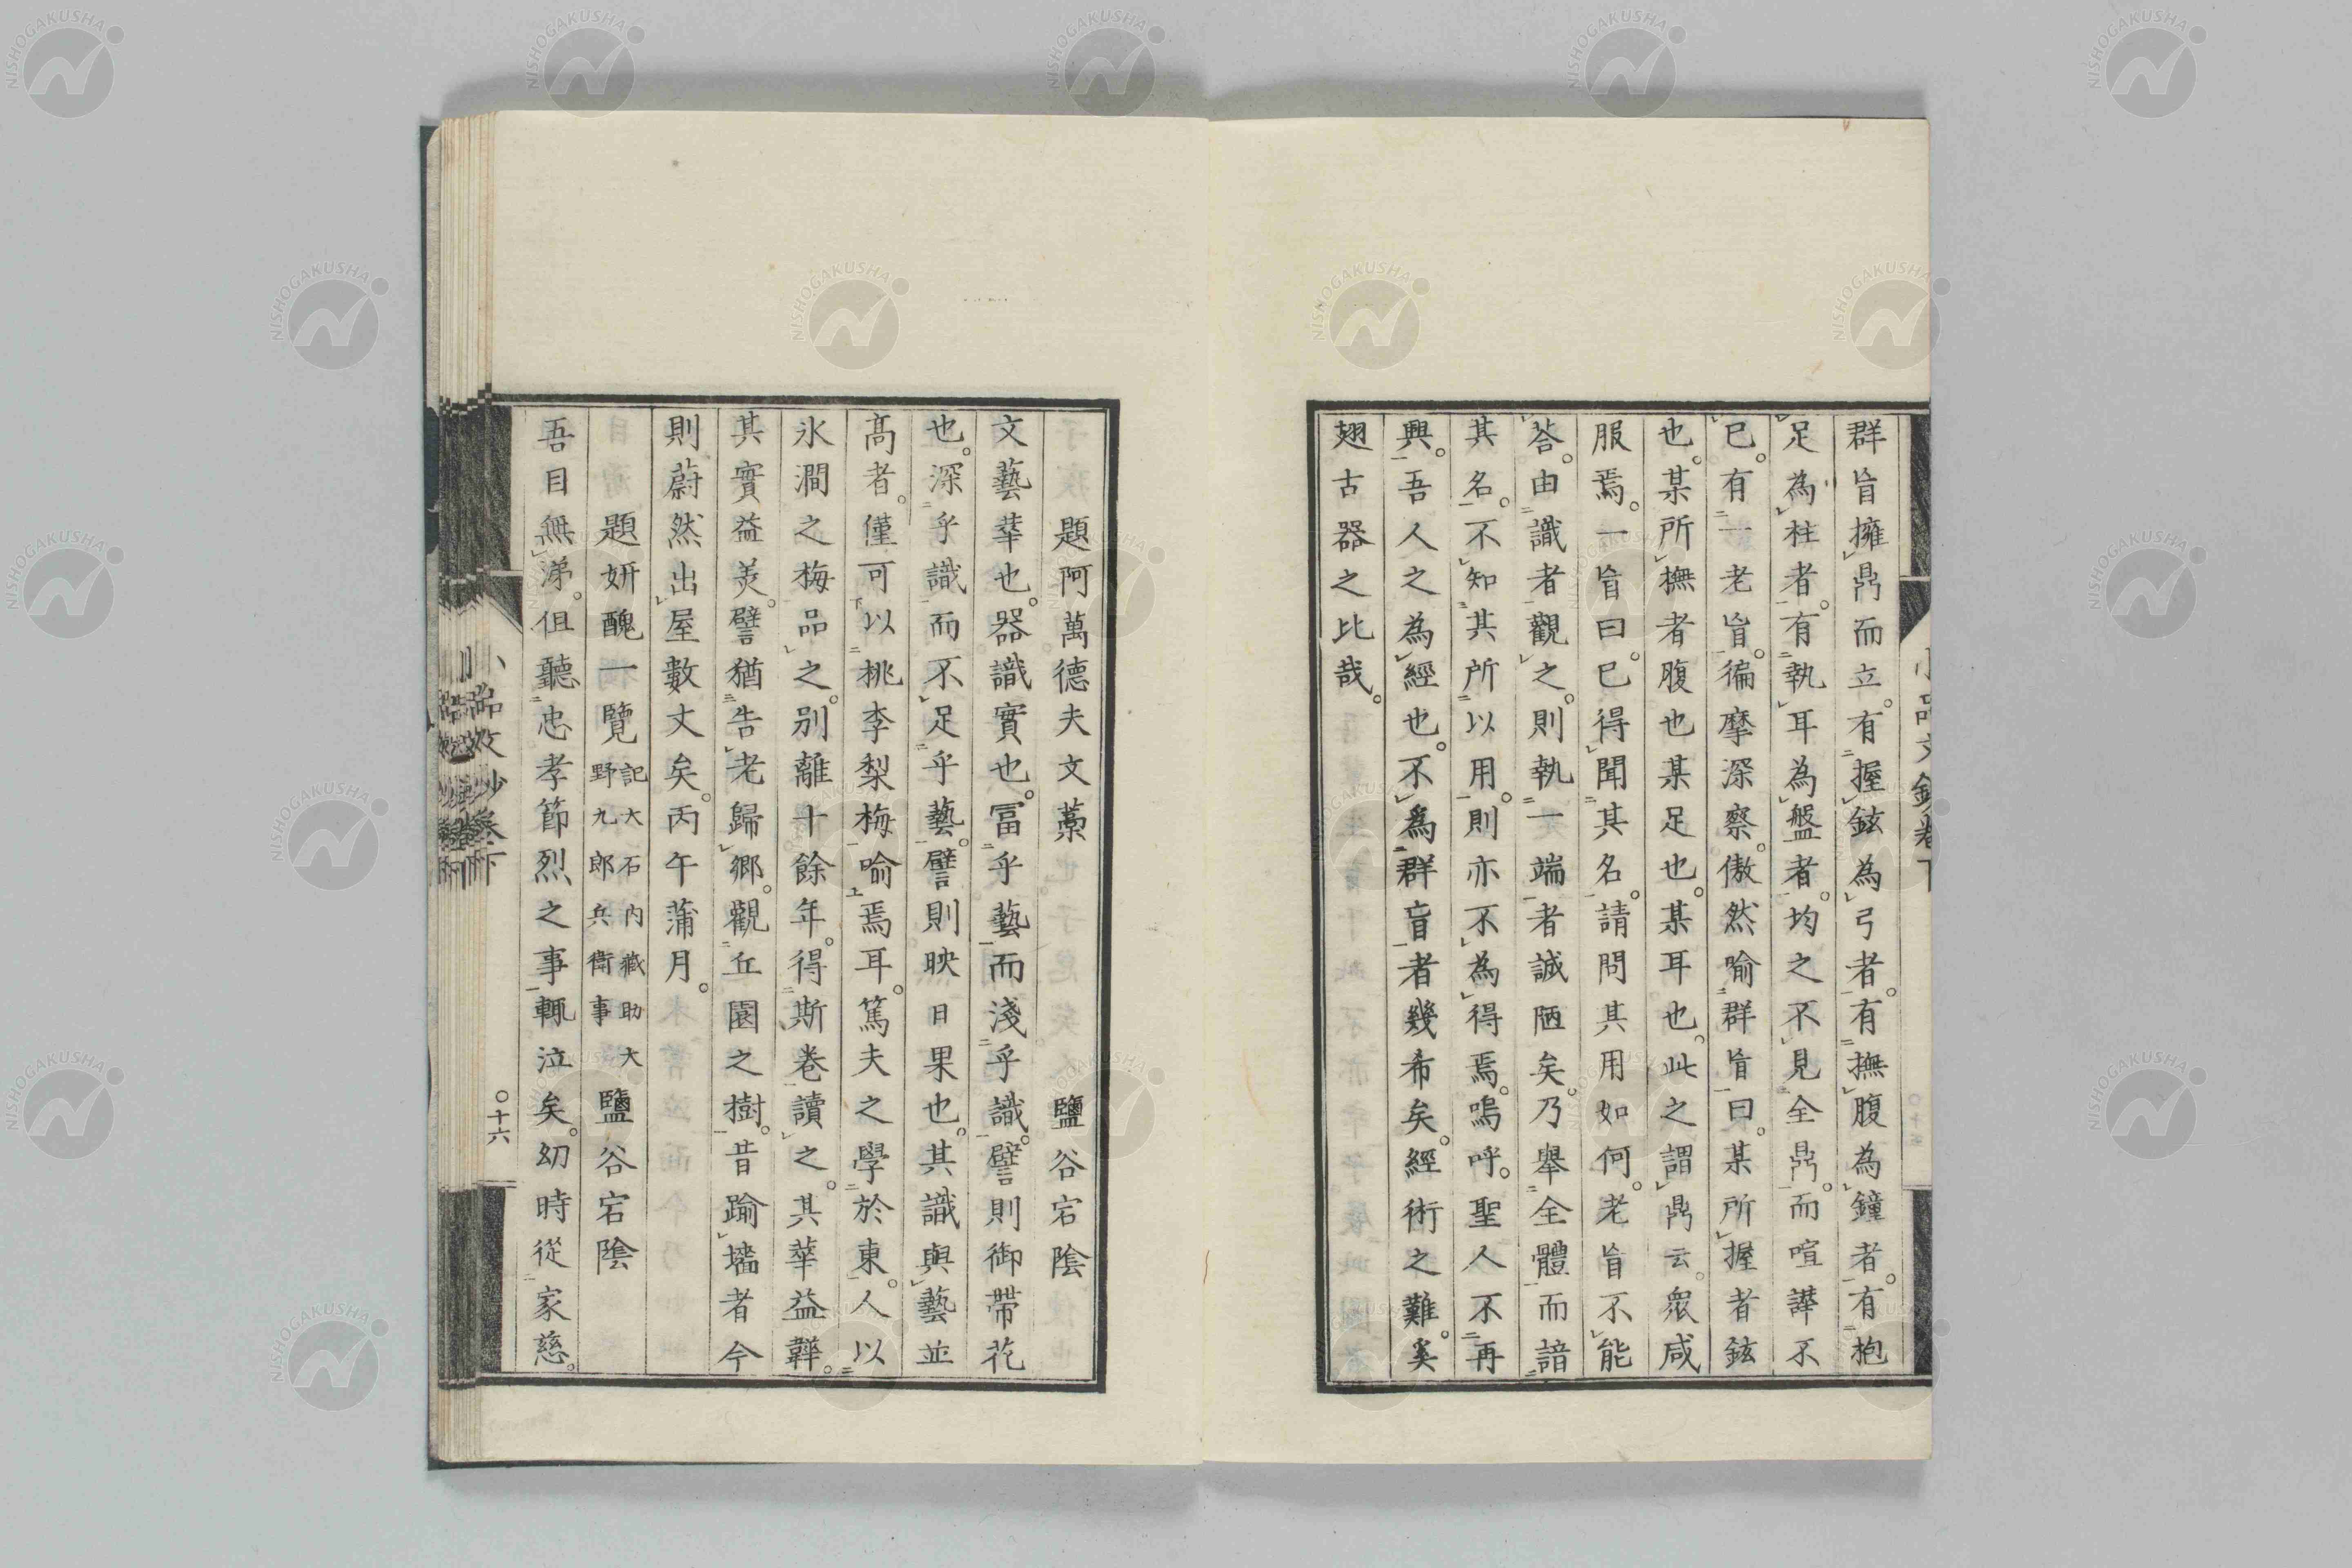 群盲擁鼎而立。有握鉉為弓者。有撫腹為鐘者。有抱
足為柱者。有執耳為盤者。均之不見全鼎。而喧譁不
已。有一老盲。徧摩深察。傲然喻群盲曰。某所握者鉉
也。某所撫者腹也某足也。某耳也。此之謂鼎云。眾咸
服焉。一盲曰。已得聞其名。請問其用如何。老盲不能
荅。由識者觀之。則執一端者誠陋矣。乃舉全體而諳
其名。不知其所以用。則亦不為得焉。嗚呼。聖人不再
興。吾人之為經也。不為群盲者幾希矣。經術之難。奚
翅古器之比哉。
題阿萬德夫文藁 鹽谷宕陰
文藝華也。器識實也。冨乎藝而淺乎識。譬則御帶花
也。深乎識而不足乎藝。譬則映日果也。其識與藝並
高者。僅可以桃李梨梅喻焉耳。篤夫之學於東。人以
氷澗之梅品之。別離十餘年。得斯卷讀之。其華益韡。
其實益美。譬猶告老歸鄉。觀丘園之樹。昔踰墻者今
則蔚然出屋數丈矣。丙午蒲月。
題妍醜一覽 記大石內藏助大野九郎兵衛事 鹽谷宕陰
吾目無涕。伹聽忠孝節烈之事輒泣矣。幼時從家慈。
小品文鈔卷下
〇十六
NISHOGAKUSHA